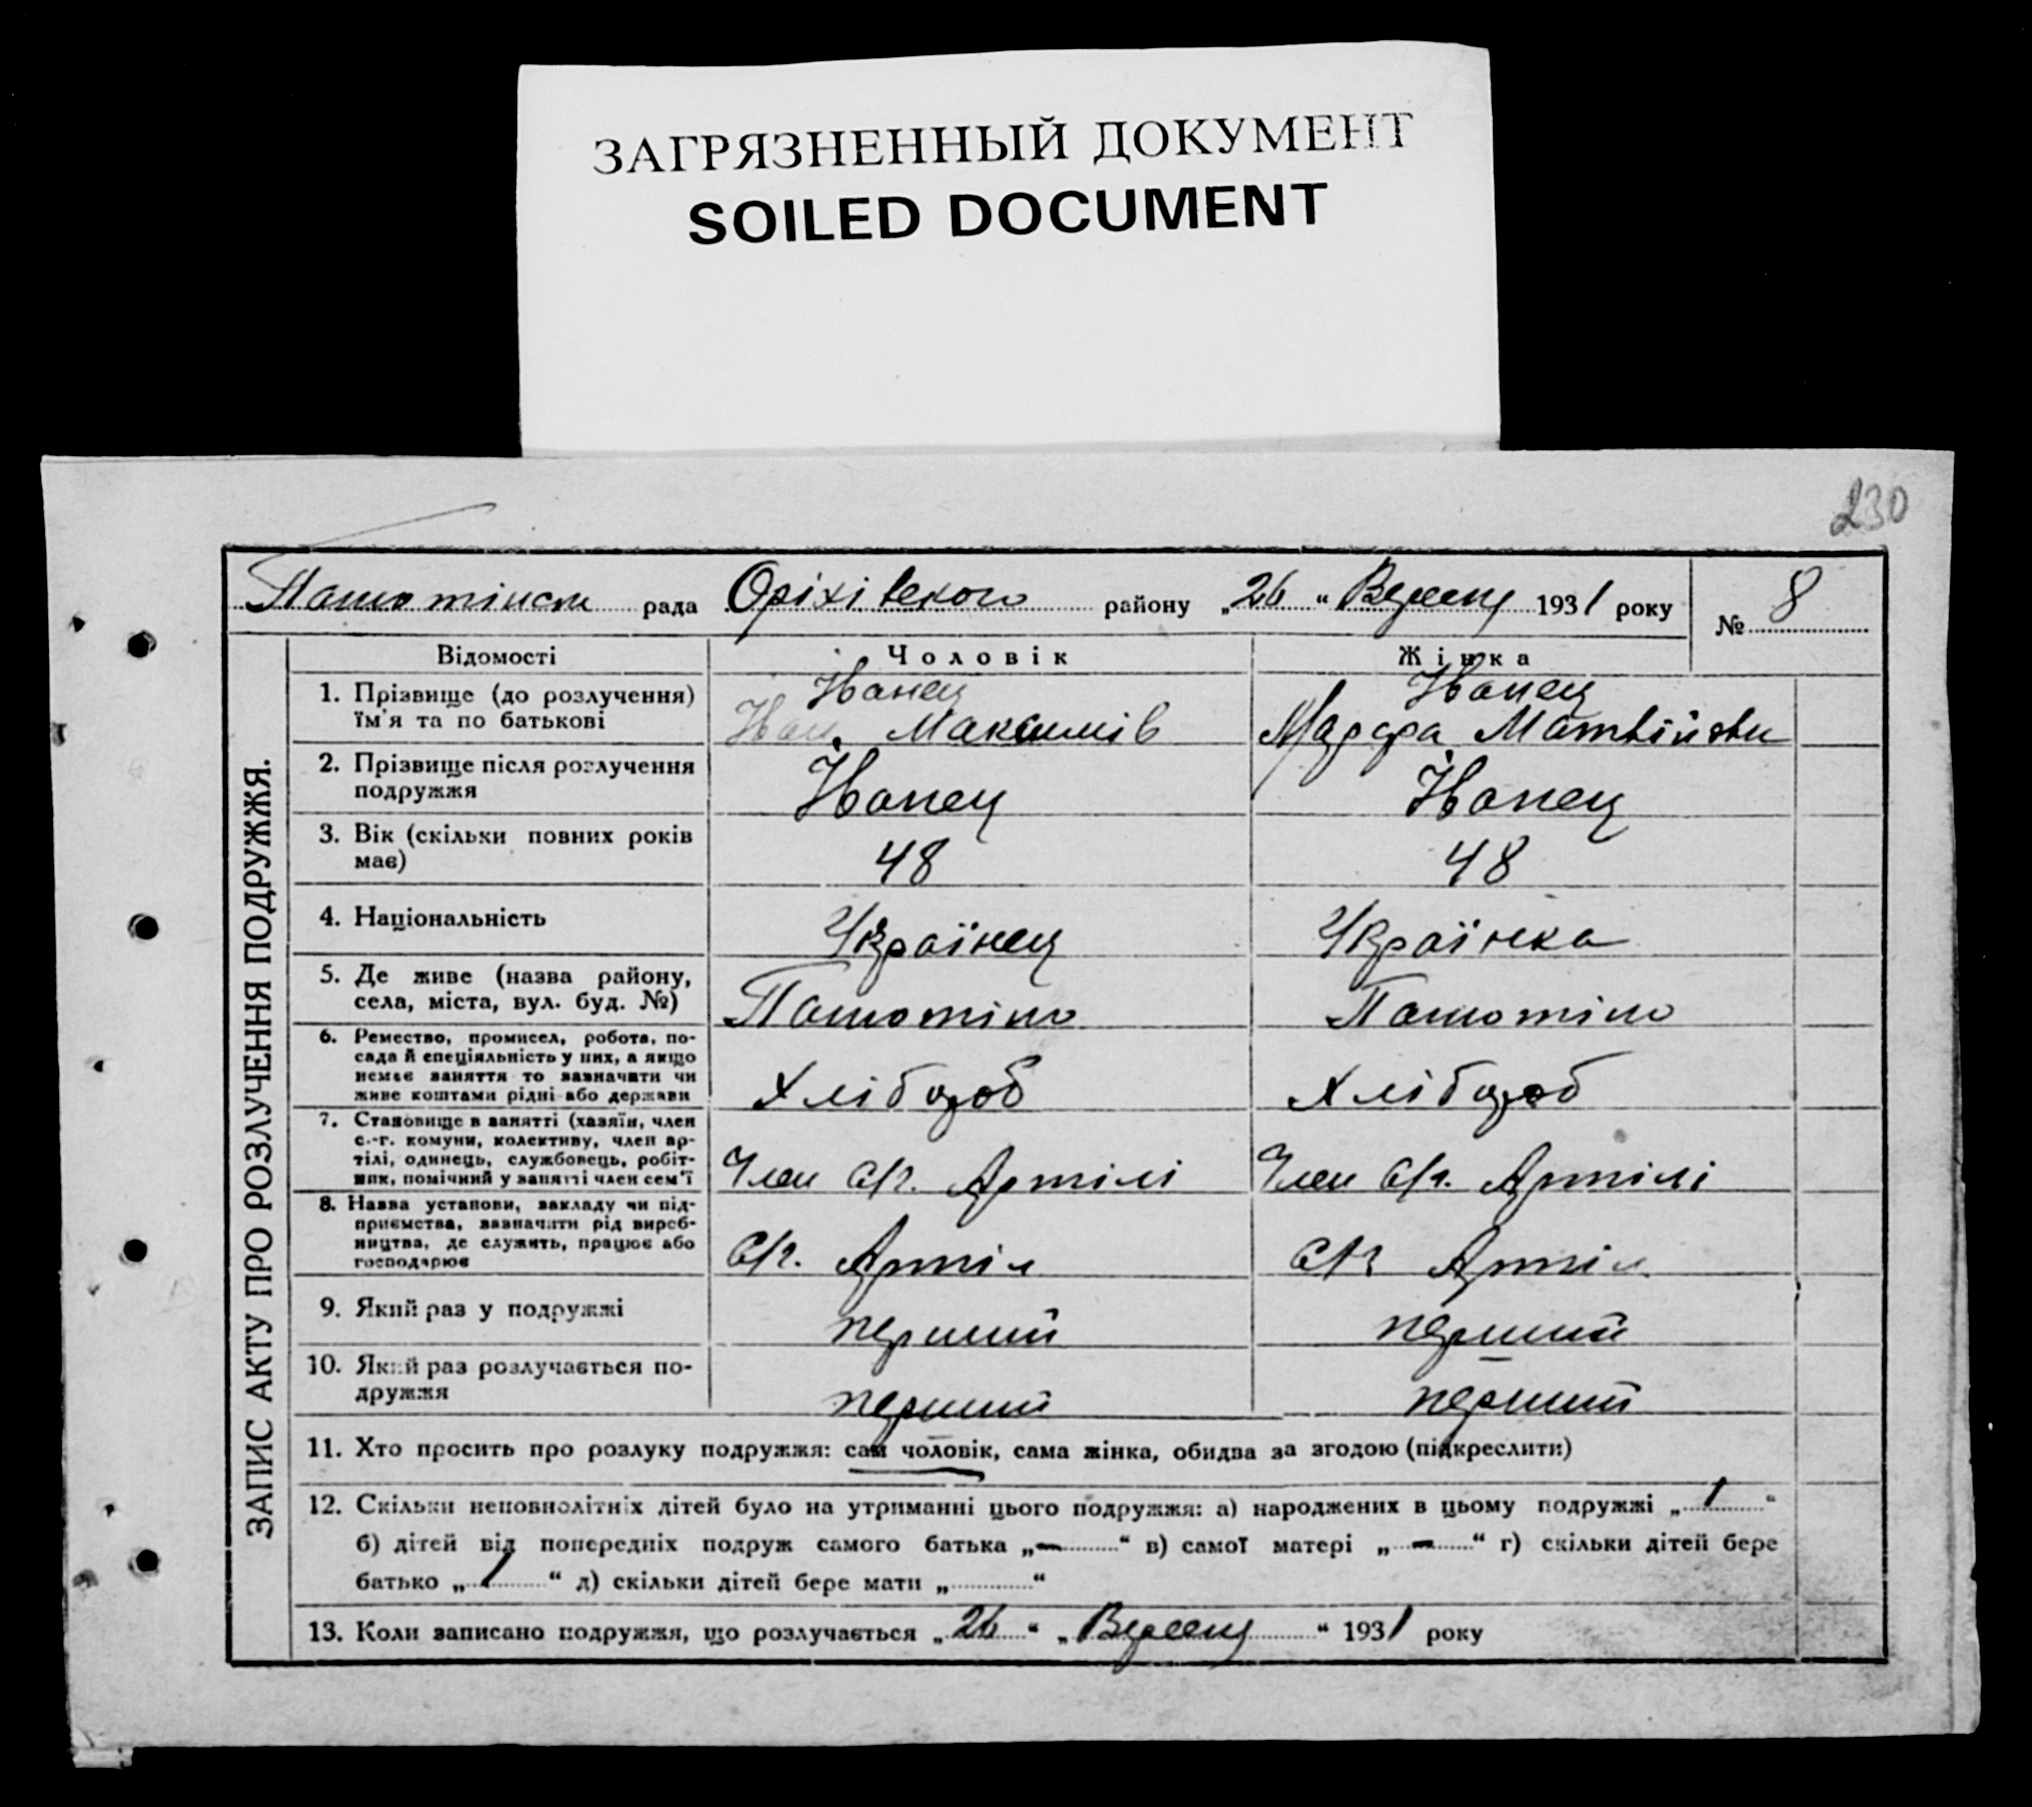 ЗАГРЯЗНЕННЫЙ ДОКУМЕНТ
SOILED DOCUMENT
230
рада Оріхівського району „26“ Вересня 1931 року № 8
ЗАПИС АКТУ ПРО РОЗЛУЧЕННЯ ПОДРУЖЖЯ.
Відомості Чоловік Жінка
1. Прізвище (до розлучення) Іванец Іванец
їм'я та по батькові Максимів Марфа Матвійовн
2. Прізвище після розлучення
подружжя Іванец Іванец
3. Вік (скільки повних років
має) 48 48
4. Національність Українец Українка
5. Де живе (назва району,
села, міста, вул. буд. №)
6. Ремество, промисел, робота, по-
сада й спеціяльність у них, а якщо
немає заняття то зазначити чи
живе коштами рідні або держави Хлібороб Хлібороб
7. Становище в занятті (хазяїн, член
с.-г. комуни, колективу, член ар-
тілі, одинець, службовець, робіт-
ник, помічний у занятті член сем'ї Член С/г. Артілі Член С/г. Артілі
8. Назва установи, закладу чи під-
приємства, зазначити рід вироб-
ництва, де служить, працює або
господарює С/г. Артіл С/г Артіл
9. Який раз у подружжі перший перший
10. Який раз розлучається по-
дружжя перший перший
11. Хто просить про розлуку подружжя: сам чоловік, сама жінка, обидва за згодою (підкреслити)
12. Скільки неповнолітніх дітей було на утриманні цього подружжя: а) народжених в цьому подружжі „1“
б) дітей від попередніх подруж самого батька „—“ в) самої матері „—“ г) скільки дітей бере
батько „1“ д) скільки дітей бере мати „ “
13. Коли записано подружжя, що розлучається „26“ „Вересня“ 1931 року